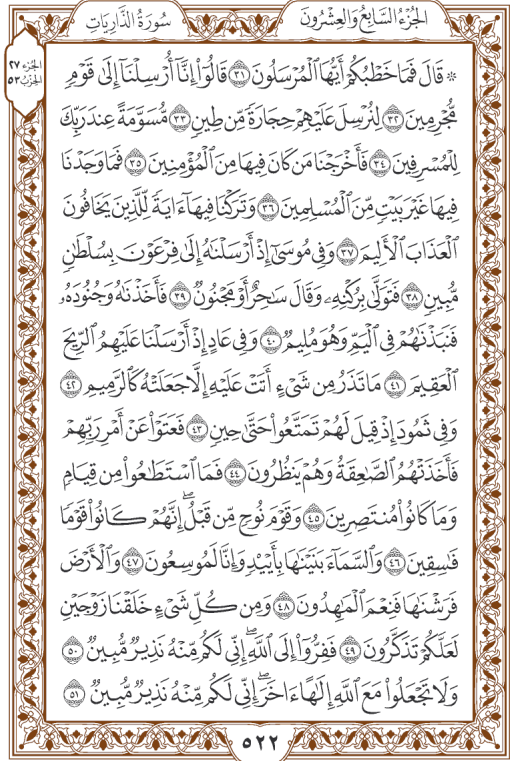 الجُزْءُ السَّابِعُ وَالعِشْرُونَ
سُورَةُ الذَّارِيَاتِ
الجزء ٢٧
الحزب ٥٣
۞ قَالَ فَمَا خَطْبُكُمْ أَيُّهَا ٱلْمُرْسَلُونَ ٣١ قَالُوٓا۟ إِنَّآ أُرْسِلْنَآ إِلَىٰ قَوْمٍ
مُّجْرِمِينَ ٣٢ لِنُرْسِلَ عَلَيْهِمْ حِجَارَةً مِّن طِينٍ ٣٣ مُّسَوَّمَةً عِندَ رَبِّكَ
لِلْمُسْرِفِينَ ٣٤ فَأَخْرَجْنَا مَن كَانَ فِيهَا مِنَ ٱلْمُؤْمِنِينَ ٣٥ فَمَا وَجَدْنَا
فِيهَا غَيْرَ بَيْتٍ مِّنَ ٱلْمُسْلِمِينَ ٣٦ وَتَرَكْنَا فِيهَآ ءَايَةً لِّلَّذِينَ يَخَافُونَ
ٱلْعَذَابَ ٱلْأَلِيمَ ٣٧ وَفِى مُوسَىٰٓ إِذْ أَرْسَلْنَٰهُ إِلَىٰ فِرْعَوْنَ بِسُلْطَٰنٍ
مُّبِينٍ ٣٨ فَتَوَلَّىٰ بِرُكْنِهِۦ وَقَالَ سَٰحِرٌ أَوْ مَجْنُونٌ ٣٩ فَأَخَذْنَٰهُ وَجُنُودَهُۥ
فَنَبَذْنَٰهُمْ فِى ٱلْيَمِّ وَهُوَ مُلِيمٌ ٤٠ وَفِى عَادٍ إِذْ أَرْسَلْنَا عَلَيْهِمُ ٱلرِّيحَ
ٱلْعَقِيمَ ٤١ مَا تَذَرُ مِن شَىْءٍ أَتَتْ عَلَيْهِ إِلَّا جَعَلَتْهُ كَٱلرَّمِيمِ ٤٢
وَفِى ثَمُودَ إِذْ قِيلَ لَهُمْ تَمَتَّعُوا۟ حَتَّىٰ حِينٍ ٤٣ فَعَتَوْا۟ عَنْ أَمْرِ رَبِّهِمْ
فَأَخَذَتْهُمُ ٱلصَّٰعِقَةُ وَهُمْ يَنظُرُونَ ٤٤ فَمَا ٱسْتَطَٰعُوا۟ مِن قِيَامٍ
وَمَا كَانُوا۟ مُنتَصِرِينَ ٤٥ وَقَوْمَ نُوحٍ مِّن قَبْلُ ۖ إِنَّهُمْ كَانُوا۟ قَوْمًا
فَٰسِقِينَ ٤٦ وَٱلسَّمَآءَ بَنَيْنَٰهَا بِأَيْي۟دٍ وَإِنَّا لَمُوسِعُونَ ٤٧ وَٱلْأَرْضَ
فَرَشْنَٰهَا فَنِعْمَ ٱلْمَٰهِدُونَ ٤٨ وَمِن كُلِّ شَىْءٍ خَلَقْنَا زَوْجَيْنِ
لَعَلَّكُمْ تَذَكَّرُونَ ٤٩ فَفِرُّوٓا۟ إِلَى ٱللَّهِ ۖ إِنِّى لَكُم مِّنْهُ نَذِيرٌ مُّبِينٌ ٥٠
وَلَا تَجْعَلُوا۟ مَعَ ٱللَّهِ إِلَٰهًا ءَاخَرَ ۖ إِنِّى لَكُم مِّنْهُ نَذِيرٌ مُّبِينٌ ٥١
٥٢٢